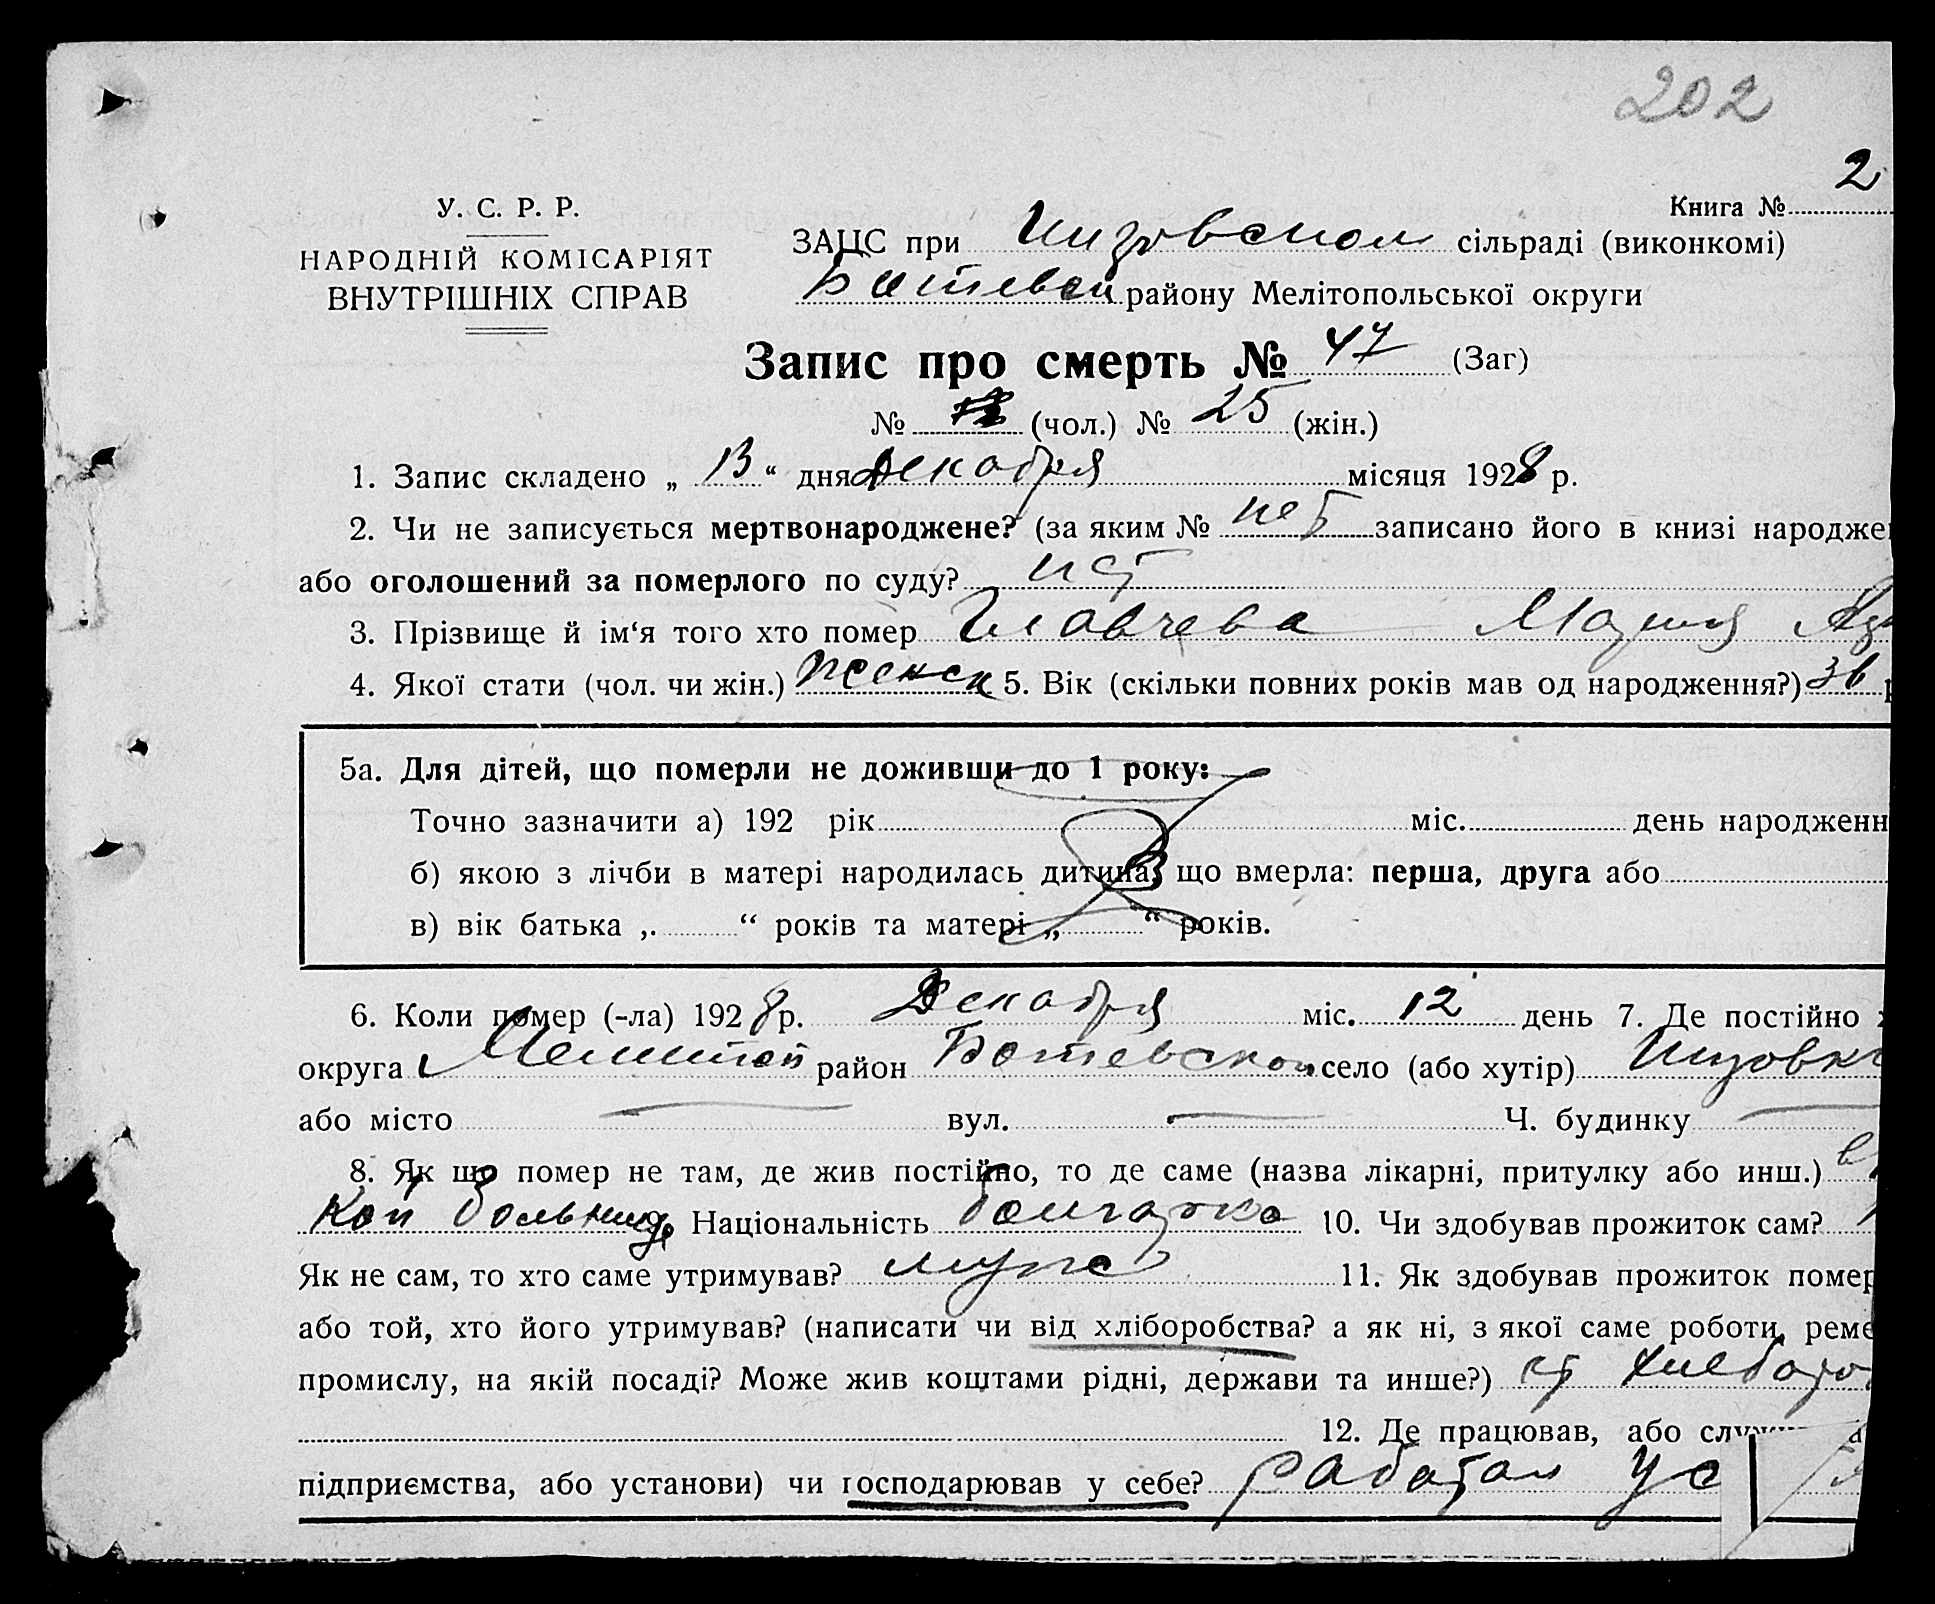 202
Книга № 2
У. С. Р. Р.
НАРОДНІЙ КОМІСАРІЯТ
ВНУТРІШНІХ СПРАВ
ЗАЦС при сільраді (виконкомі)
району Мелітопольської округи
Запис про смерть № 47 (Заг)
№ (чол.) № 25 (жін.)
1. Запис складено „ 13 “ дня Декабря місяця 1928 р.
2. Чи не записується мертвонароджене? (за яким № нет записано його в книзі народже
або оголошений за померлого по суду? нет
3. Прізвище й ім‘я того хто помер Главчева Мария
4. Якої стати (чол. чи жін.) женск 5. Вік (скільки повних років мав од народження?)
5а. Для дітей, що померли не доживши до 1 року:
Точно зазначити а) 192 рік міс. день народженн
б) якою з лічби в матері народилась дитина, що вмерла: перша, друга або
в) вік батька „ “ років та матері „ “ років.
6. Коли помер (-ла) 1928 р. Декабря міс. 12 день 7. Де постійно
округа Мелитоп район Ботевском село (або хутір)
або місто вул. Ч. будинку
8. Як що помер не там, де жив постійно, то де саме (назва лікарні, притулку або инш.) в
кой больнице 9. Національність болгарка 10. Чи здобував прожиток сам?
Як не сам, то хто саме утримував? муж 11. Як здобував прожиток помер
або той, хто його утримував? (написати чи від хліборобства? а як ні, з якої саме роботи, реме
промислу, на якій посаді? Може жив коштами рідні, держави та инше?) от хлеборо
12. Де працював, або
підприємства, або установи) чи господарював у себе? работал у с